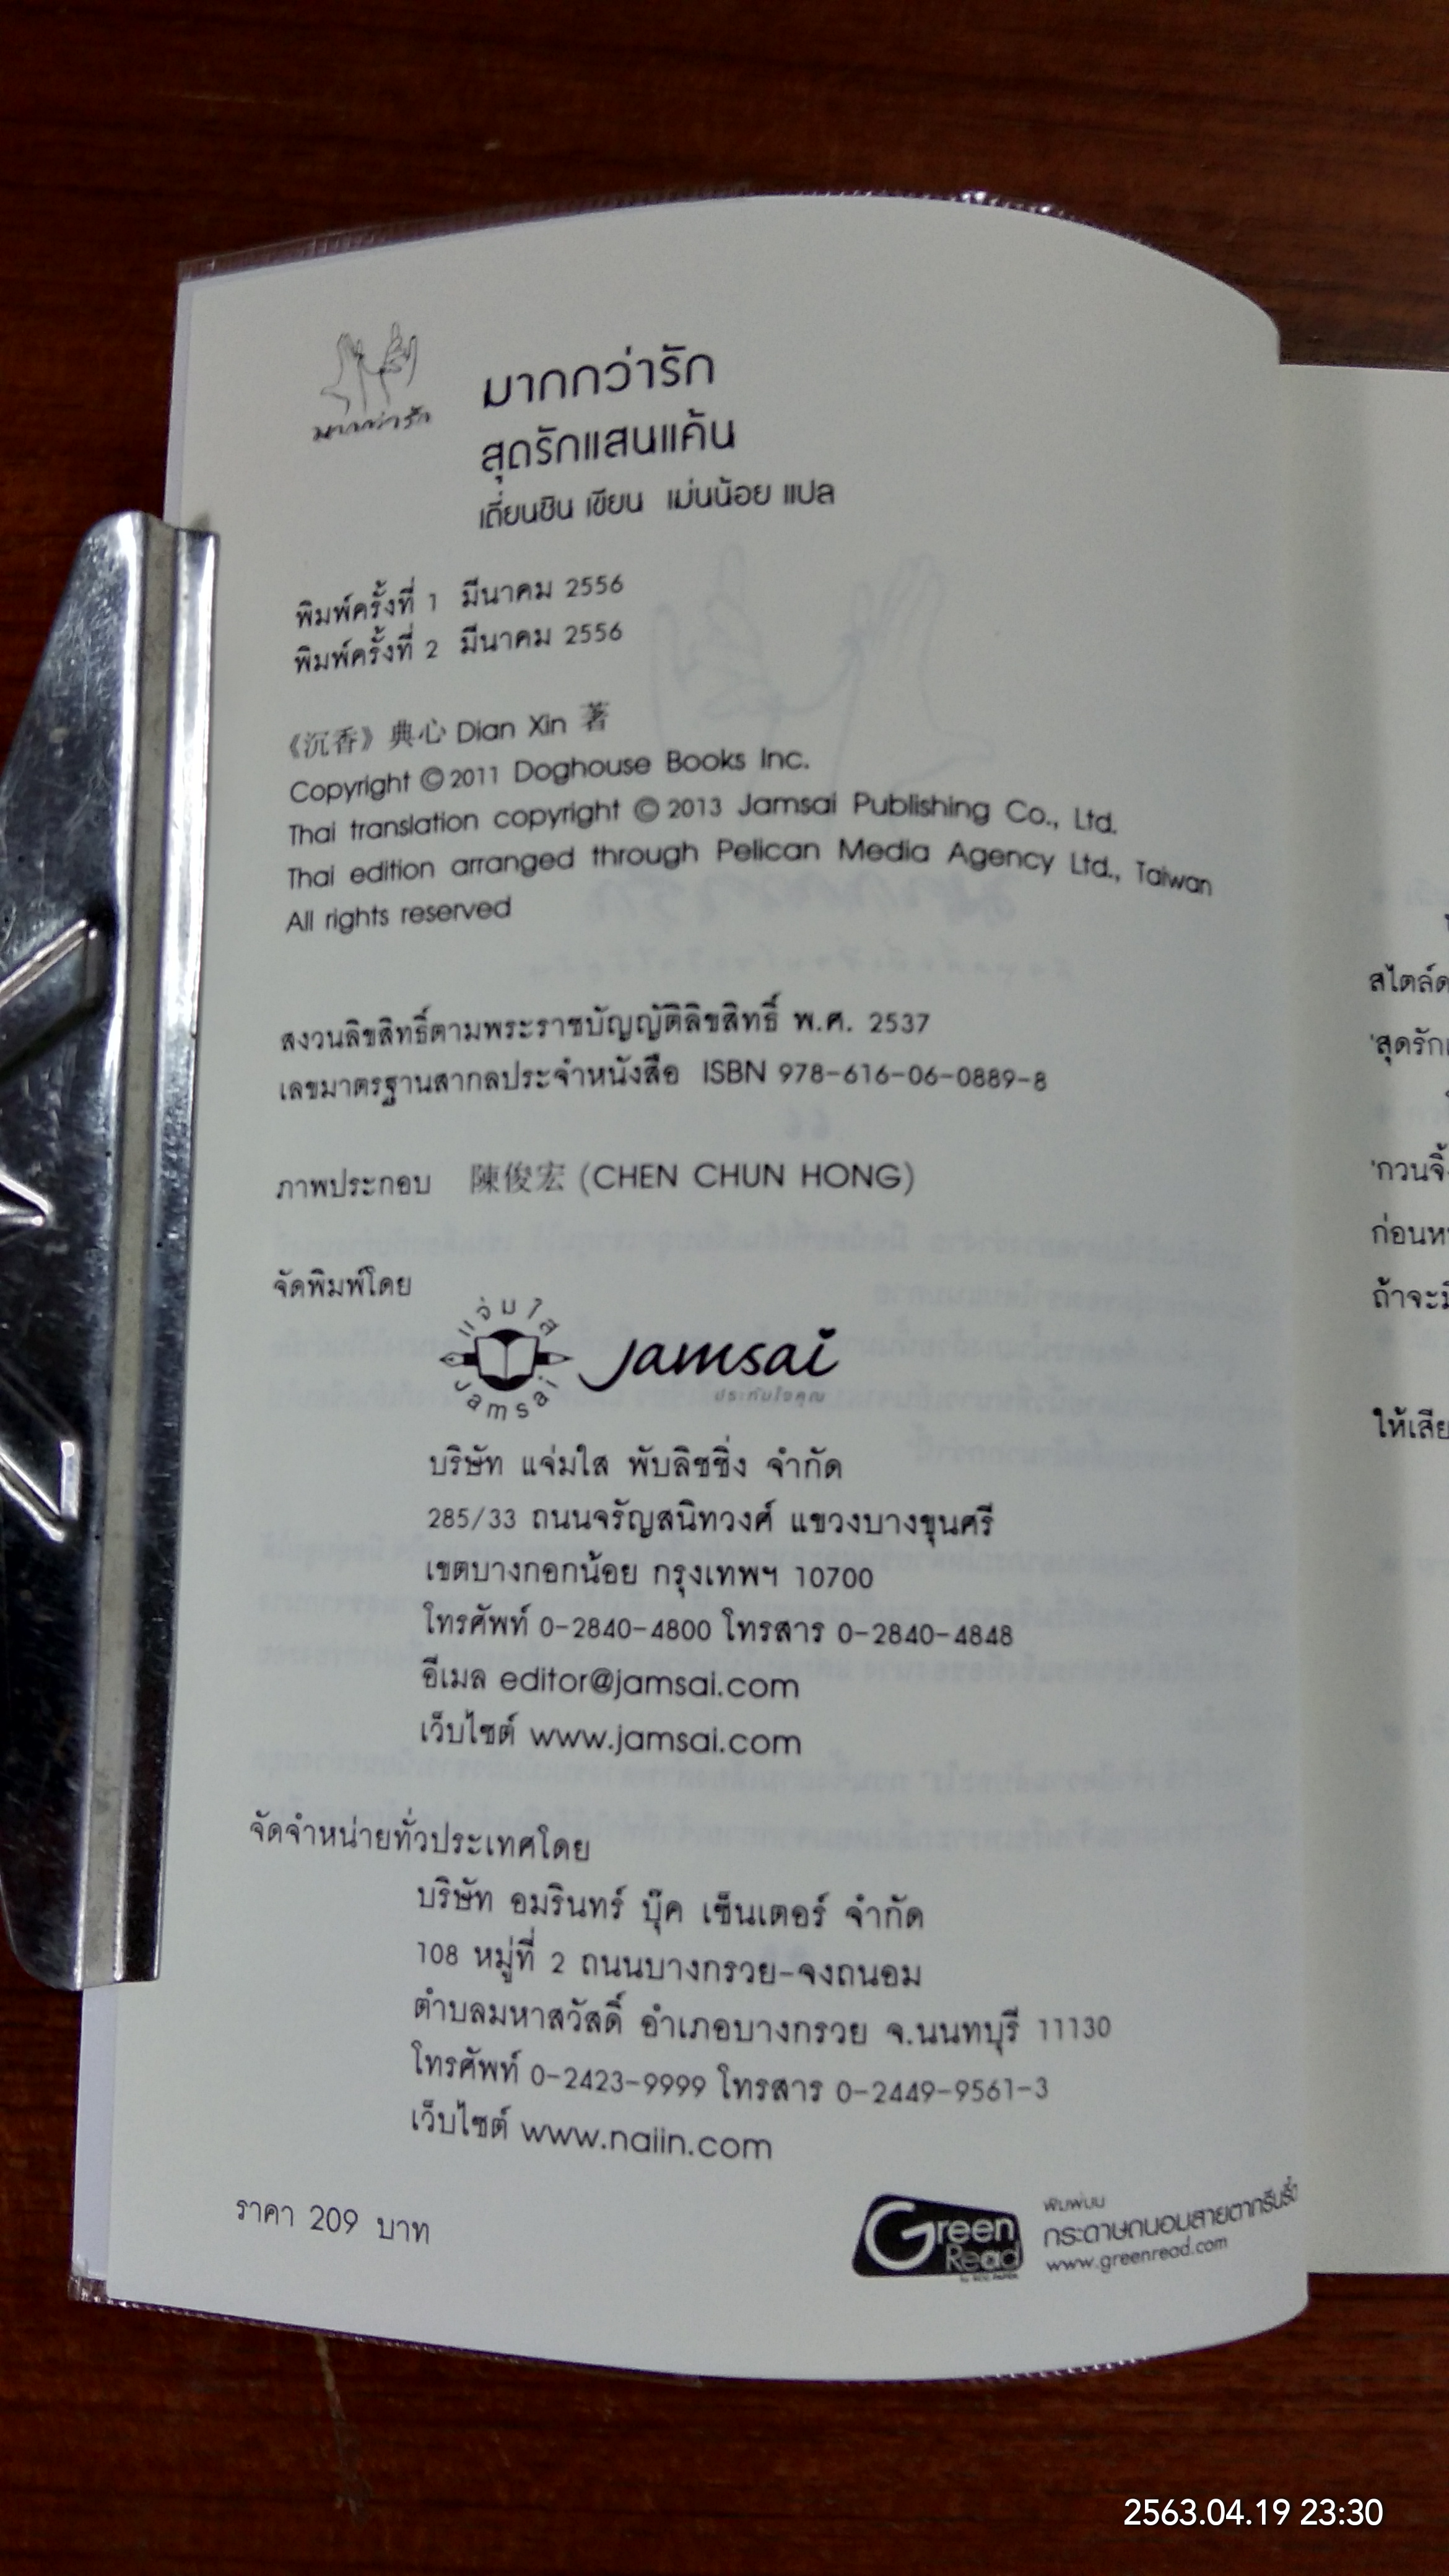 มากกว่ารัก
มากกว่ารัก
สุดรักแสนแค้น
เตี่ยนซิน เขียน เม่นน้อย แปล
พิมพ์ครั้งที่ 1 มีนาคม 2556
พิมพ์ครั้งที่ 2 มีนาคม 2556
《沉香》典心 Dian Xin 著
Copyright © 2011 Doghouse Books Inc.
Thai translation copyright © 2013 Jamsai Publishing Co., Ltd.
Thai edition arranged through Pelican Media Agency Ltd., Taiwan
All rights reserved
สงวนลิขสิทธิ์ตามพระราชบัญญัติลิขสิทธิ์ พ.ศ. 2537
เลขมาตรฐานสากลประจำหนังสือ ISBN 978-616-06-0889-8
ภาพประกอบ 陳俊宏 (CHEN CHUN HONG)
จัดพิมพ์โดย
แจ่มใส
Jamsai
Jamsai
ประทับใจคุณ
บริษัท แจ่มใส พับลิชชิ่ง จำกัด
285/33 ถนนจรัญสนิทวงศ์ แขวงบางขุนศรี
เขตบางกอกน้อย กรุงเทพฯ 10700
โทรศัพท์ 0-2840-4800 โทรสาร 0-2840-4848
อีเมล editor@jamsai.com
เว็บไซต์ www.jamsai.com
จัดจำหน่ายทั่วประเทศโดย
บริษัท อมรินทร์ บุ๊ค เซ็นเตอร์ จำกัด
108 หมู่ที่ 2 ถนนบางกรวย-จงถนอม
ตำบลมหาสวัสดิ์ อำเภอบางกรวย จ.นนทบุรี 11130
โทรศัพท์ 0-2423-9999 โทรสาร 0-2449-9561-3
เว็บไซต์ www.naiin.com
ราคา 209 บาท
Green
Read
พิมพ์บน
กระดาษถนอมสายตากรีนรี้ด
www.greenread.com
สไตล์
'สุดรัก
'กวนจิ้
ก่อนห
ถ้าจะมี
ให้เสีย
2563.04.19 23:30